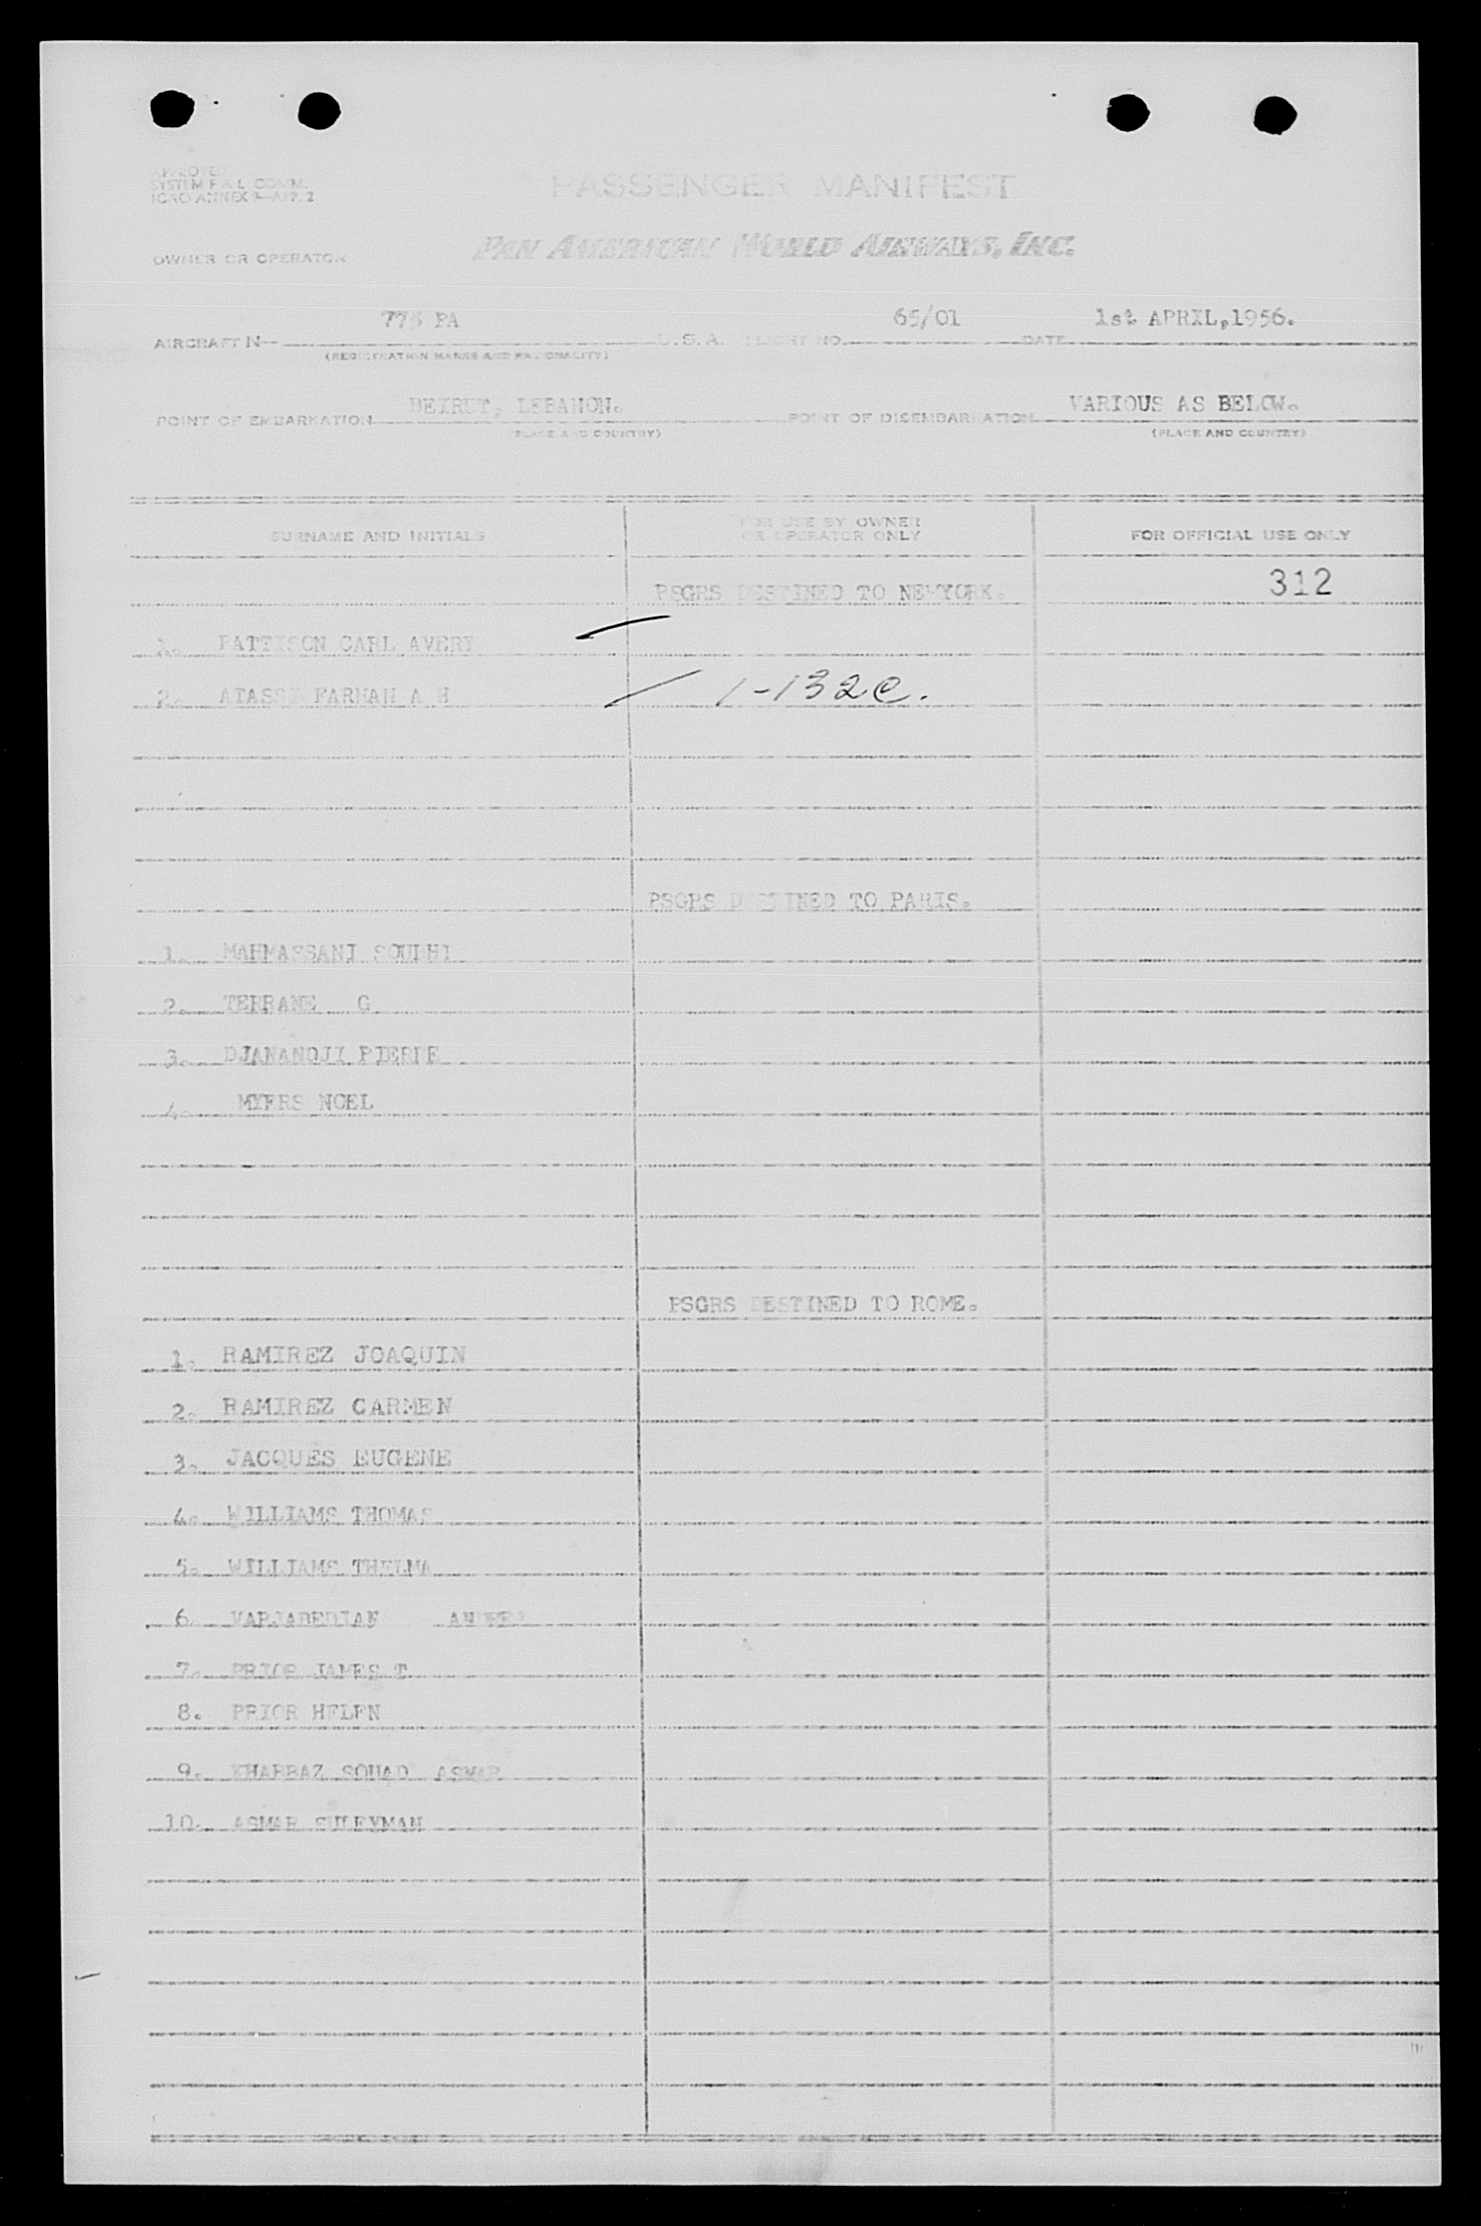 APPROVED
SYSTEM F.A.L. COMM.
ICAO ANNEX 9-APP. 2
PASSENGER MANIFEST
OWNER OR OPERATOR
PAN AMERICAN WORLD AIRWAYS, INC.
PA 65/01 1st APRIL,1956.
AIRCRAFT N U.S.A. FLIGHT NO. DATE
(REGISTRATION MARKS AND NATIONALITY)
BEIRUT, LEBANON. VARIOUS AS BELOW.
POINT OF EMBARKATION POINT OF DISEMBARKATION
(PLACE AND COUNTRY) (PLACE AND COUNTRY)
SURNAME AND INITIALS FOR USE BY OWNER OR OPERATOR ONLY FOR OFFICIAL USE ONLY
PSGRS DESTINED TO NEWYORK. 312
1. PATTISON CARL AVERY
2. ATASSI FARHAH A H 1-132c.
PSGRS DESTINED TO PARIS.
1. MAHMASSANI SOUBHI
2. TERRANE G
3. PIERRE
4. MYERS NOEL
PSGRS DESTINED TO ROME.
1. RAMIREZ JOAQUIN
2. RAMIREZ CARMEN
3. JACQUES EUGENE
4. WILLIAMS THOMAS
5. WILLIAMS THELMA
6. VARJABEDIAN
7. PRIOR JAMES T
8. PRIOR HELEN
9. KHABBAZ SOUAD ASMAR
10. ASMAR SULEYMAN